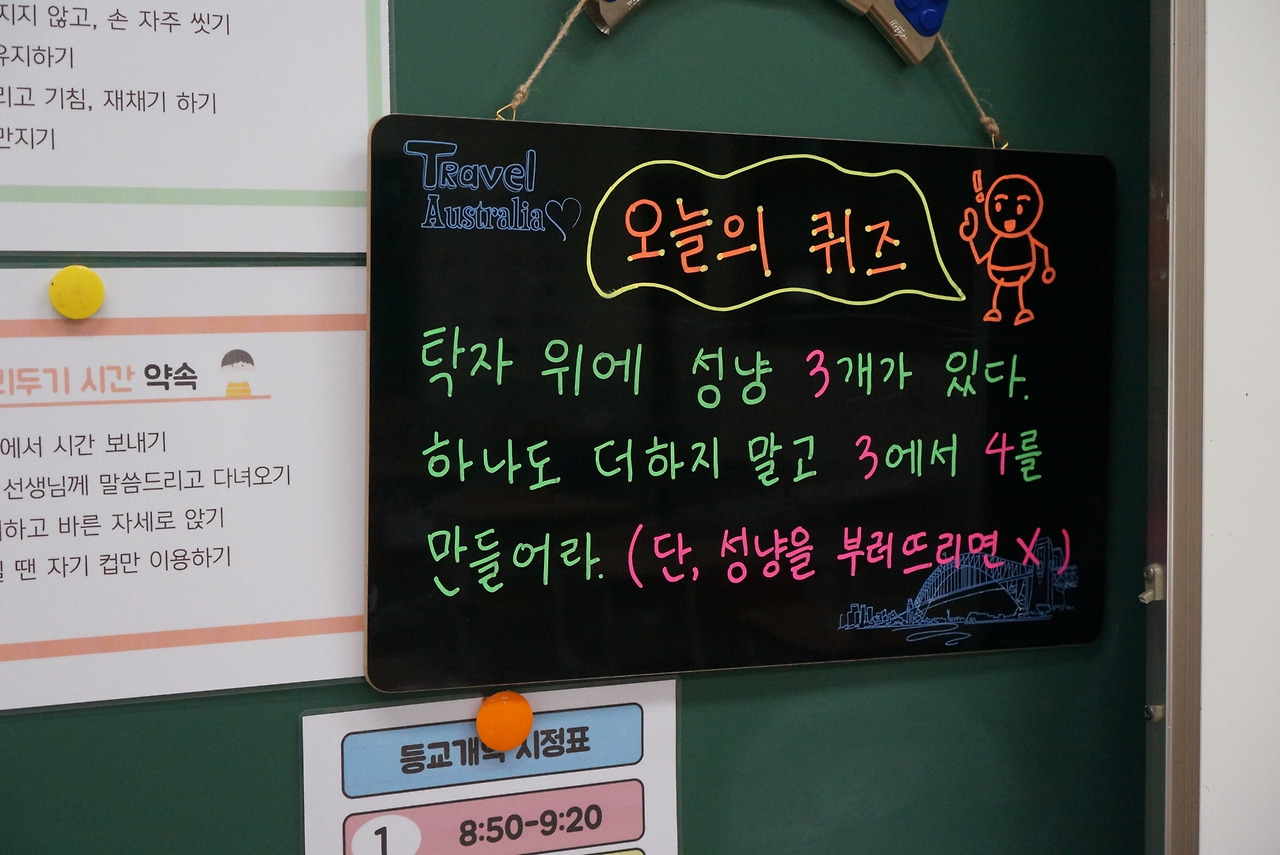 지지 않고, 손 자주 씻기
유지하기
리고 기침, 재채기 하기
만지기
리두기 시간 약속
에서 시간 보내기
선생님께 말씀드리고 다녀오기
하고 바른 자세로 앉기
땐 자기 컵만 이용하기
Travel
Australia
오늘의 퀴즈
탁자 위에 성냥 3개가 있다.
하나도 더하지 말고 3에서 4를
만들어라. (단, 성냥을 부러뜨리면 X)
등교개학 시정표
1 8:50-9:20